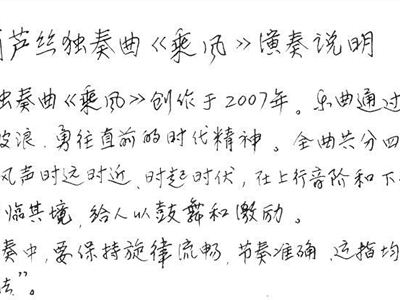 葫芦丝独奏曲《乘风》演奏说明
独奏曲《乘风》创作于2007年。乐曲通过
破浪、勇往直前的时代精神。全曲共分四
风声时远时近、时起时伏,在上行音阶和下
临其境,给人以鼓舞和激励。
奏中,要保持旋律流畅,节奏准确,运指均
法”。